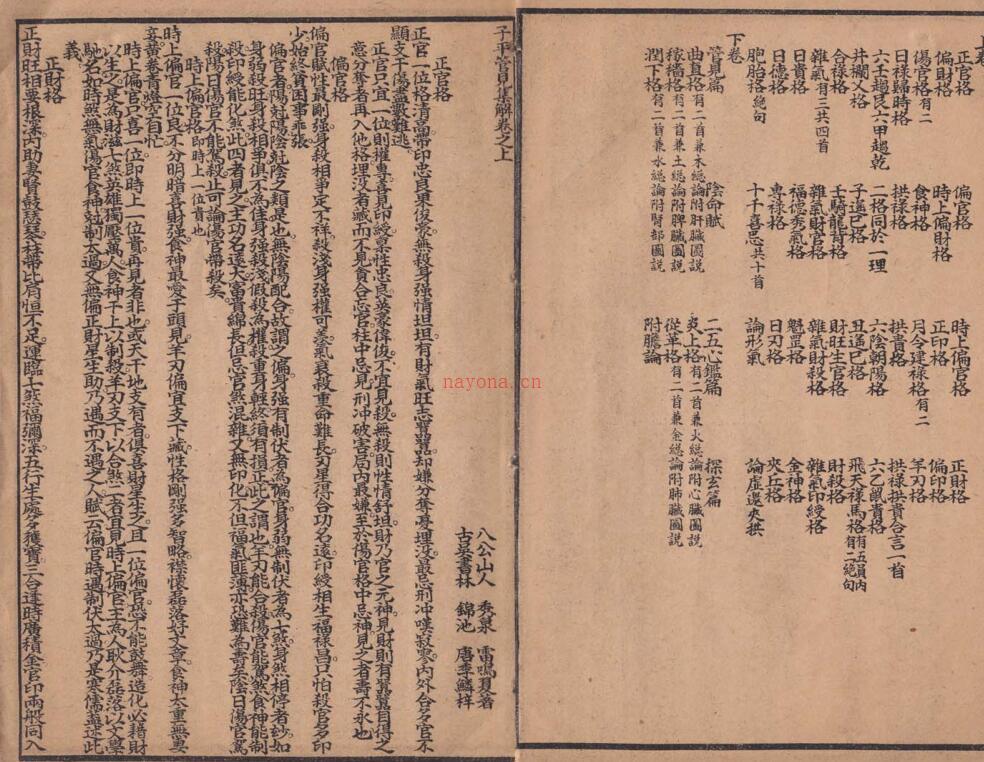 上卷
正官格 偏官格 時上偏官格 正財格
偏財格 時上偏財格 正印格 偏印格
傷官格有二 食神格 月令建祿格有二 羊刃格
日祿歸時格 拱祿格 拱貴格 拱祿拱貴合言一首
六壬趨艮六甲趨乾 二格同於一理 六陰朝陽格 六乙鼠貴格
井欄叉格 子遙巳格 丑遥巳格 飛天祿馬格有五員內有二絕句
合祿格 壬騎龍背格 財旺生官格 財殺格
雜氣有三共四首 雜氣財官格 雜氣財殺格 雜氣印綬格
日貴格 福德秀氣格 魁罡格 金神格
日德格 專祿格 日刃格 夾丘格
胞胎格絕句 十干喜忌共十首 論形氣 論虛邀夾拱
下卷
管見篇 陰命賦 二五心鑑篇 探玄篇
曲直格有二首兼木總論附肝臟圖說 炎上格有二首兼火總論附心臟圖說
稼穡格有二首兼土總論附脾臟圖說 從革格有二首兼金總論附肺臟圖說
潤下格有二首兼水總論附腎部圖說 附膽論
子平管見集解卷之上
八公山人 秀泉 雷鳴夏著
古吳書林 錦池 唐季鱗梓
正官格
正官一位格清高帶印忠良果俊豪無殺身強情坦坦有財氣旺志囂囂却嫌分奪憂埋沒最忌刑冲嘆寂寥內外合多官不
顯支干傷盡數難逃
正官只宜一位則權尊喜見印綬稟性忠良英豪俊偉不宜見殺無殺則性情舒坦財乃官之元神見財則有囂囂自得之
意分奪者再入他格埋沒者藏而不見貪合忘官柱中忌見刑冲破害局內最嫌至於傷官格中忌神見之者壽不永也
偏官格
偏官賦性最剛強身殺相爭定不祥殺淺身強權可羨氣衰殺重命難長刃星得合功名遠印綬相生福祿昌只怕殺官多多印
少始終貧困事乖張
偏官者陽尅陽陰尅陰之類是也無陰陽配合故謂之偏身強有制伏者為偏官身弱無制伏者為七煞身煞相停者玅如
身弱殺旺身殺相爭俱不為佳身強殺淺假殺為權殺重身輕終須有損正此之謂也羊刃能合殺傷官能駕煞食神能制
殺印綬能化煞此四者見之主功名遠大富貴綿長但忌官煞混雜又無印化不但福氣匪薄亦恐難為壽矣陰日傷官駕
殺陽日傷官不能駕殺止可論傷官帶殺矣
時上偏官格即時上一位貴也
時上偏官一位良不分明暗喜財強食神最愛干頭見羊刃偏宜支下藏性格剛強多智略襟懷磊落好文章食神太重無妻
妾黃卷青燈空自忙
時上偏官只喜一位即時上一位貴再見者非也或天干地支有者俱喜財星生之且一位偏官恐不能鼓舞造化必藉財
以生之是為財滋七煞英雄獨壓萬人食神干上以制殺羊刃支下以合煞二者宜見時上偏官主為人耿介磊落以文學
馳名如時煞無氣傷官食神尅制太過又無偏正財星生助乃遇而不遇之人賦云偏官時遇制伏太過乃是寒儒蓋述此
義
正財格
正財旺相要根深內助妻賢鼓瑟琴柱帶比肩恒不足運臨七煞福彌深五行生處多獲寶三合逢時廣積金官印兩般同入
nayona.cn